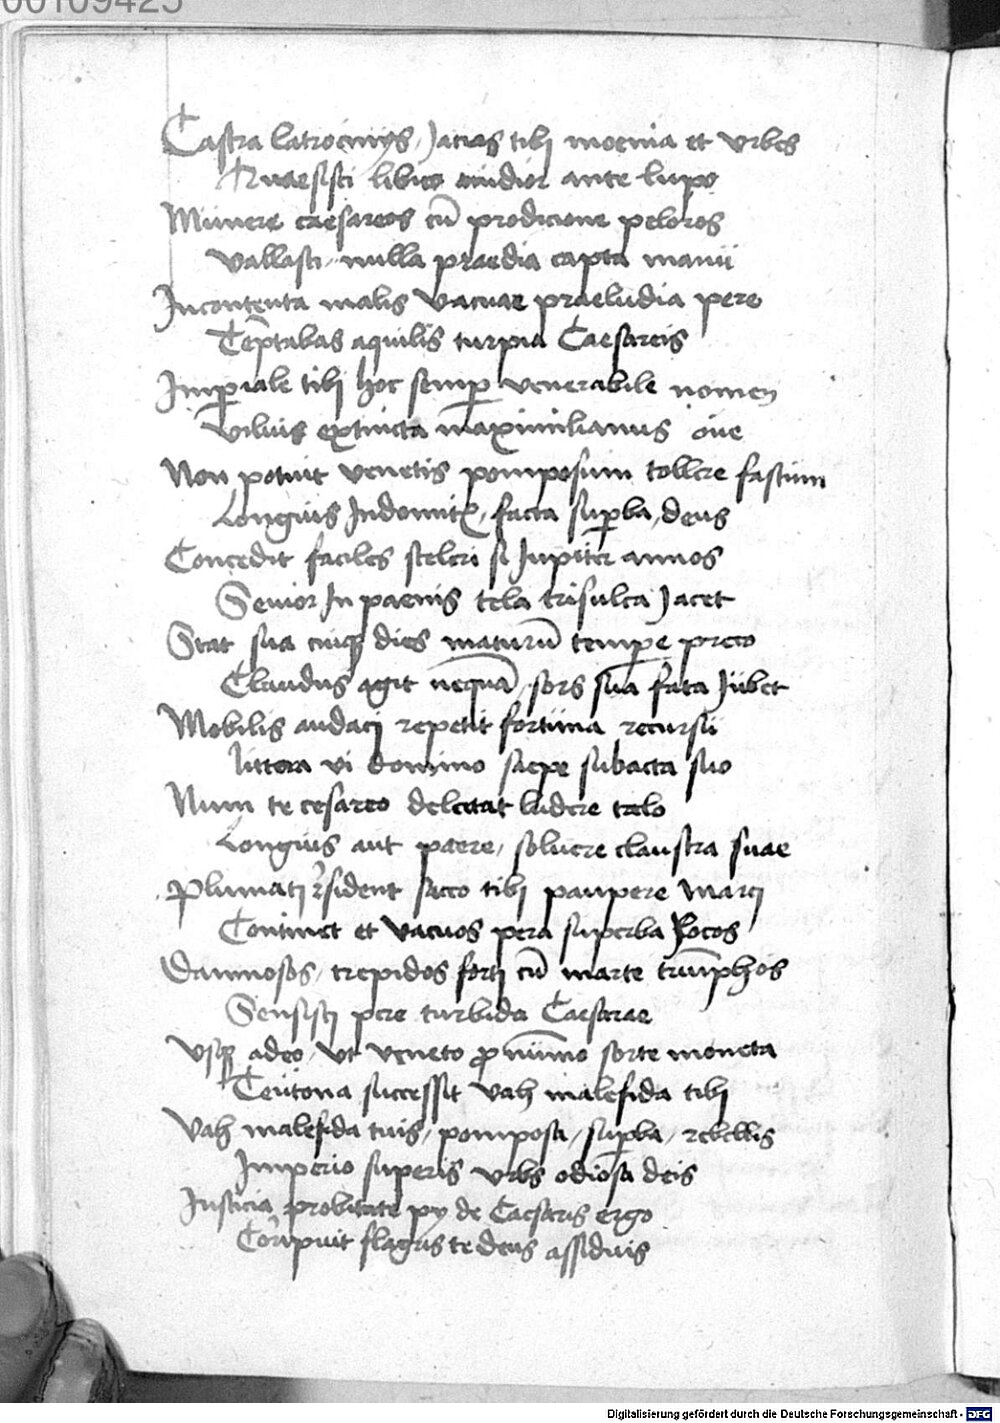 00109425
Castra latrocinijs, Jacias tibj moenia et vrbes
Quaesisti libico auidior ante lupo
Munere caesareos cū prodicione peloros
Vallasti, nulla praedia capta manu
Incontenta malis vacuae praeludia pere
Tēptabas aquilis turpia Caesareis
Imperiale tibj hoc semper venerabile nomen
Viluis extincta maximilianus
Non potuit venetis pomposum tollere fastum
Longius Indomitꝫ, facta superba, deus
Concedit faciles sceleri si Jupiter annos
Senior In paenis tela trisulca Jacet
Stat sua cuiqꝫ dies maturū tempore preco
Claudus agit nequā, sors sua fata Jubet
Mobilis audacj repetit fortuna recursu
littera vi domino saepe subacta suo
Num te cesareo delectat ludere telo
Longius aut paere, soluere claustra suae
Plumatj resident sacco tibj paupere Marcj
Continet et vacuos pera superba locos
Damnosos, trepidos fortj cū marte triūphos
Sensistj pere turbida Caesarae
Vsqꝫ adeo, vt veneto ꝓ nummo sorte moneta
Teutona successit vah malefida tibj
Vah malefida tuis, pomposa, superba, rebellis
Imperio superis vrbs odiosa deis
Justicia probitate pij de Caesaris ergo
Corripuit flagris te deus assiduis
Digitalisierung gefördert durch die Deutsche Forschungsgemeinschaft - DFG